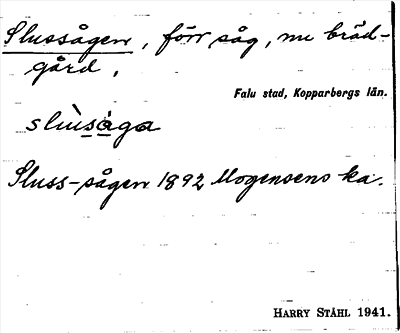 Slussågen, förr såg, nu bräd-
gård.
Falu stad, Kopparbergs län.
slùsåga
Sluss-sågen 1892 Mogensens ka.
HARRY STÅHL 1941.